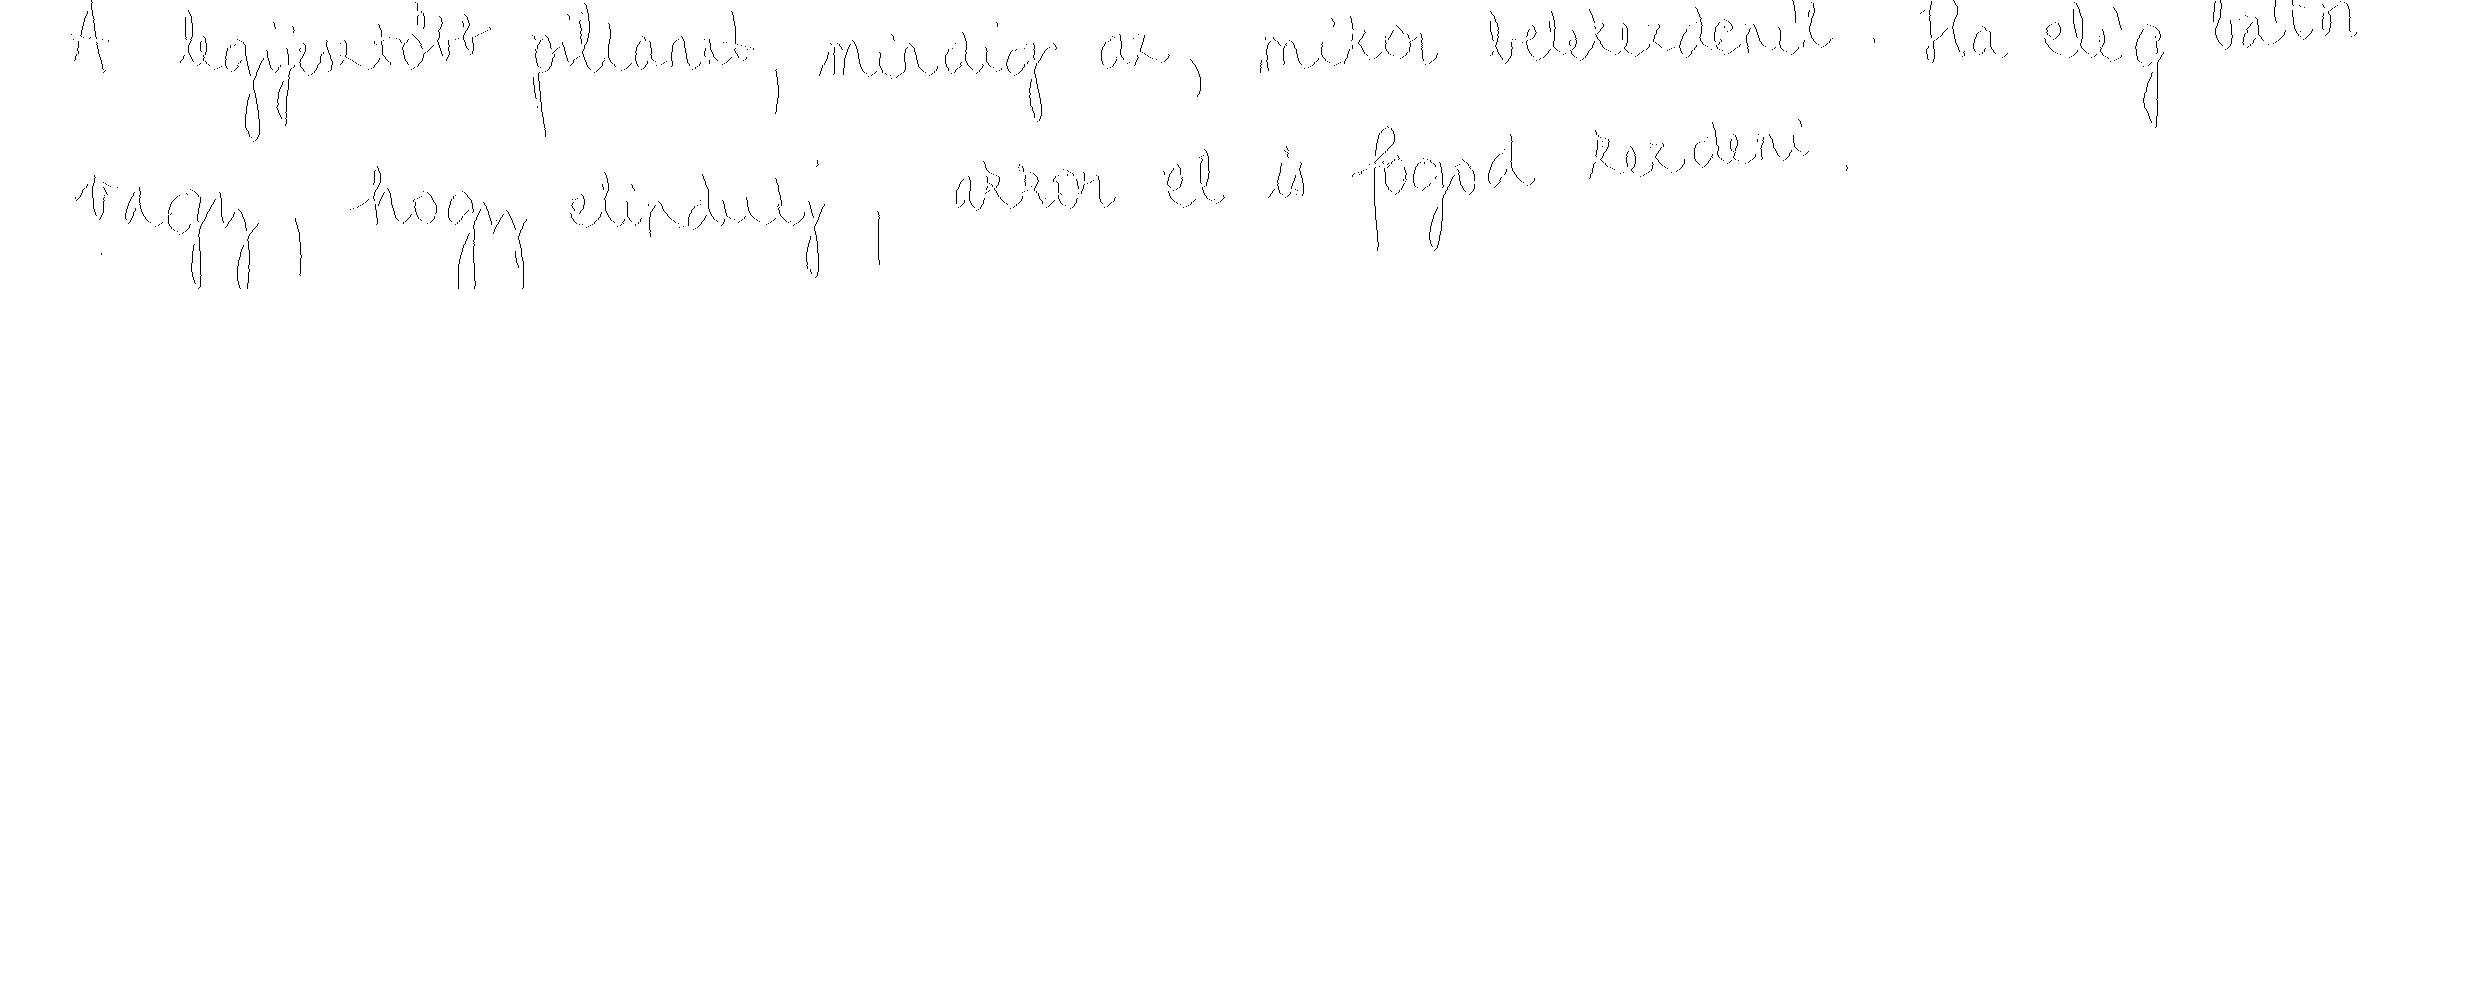 A legijesztőbb pillanat, mindig az, mikor belekezdenél. Ha elég bátor
vagy, hogy elindulj, akkor el is fogod kezdeni.